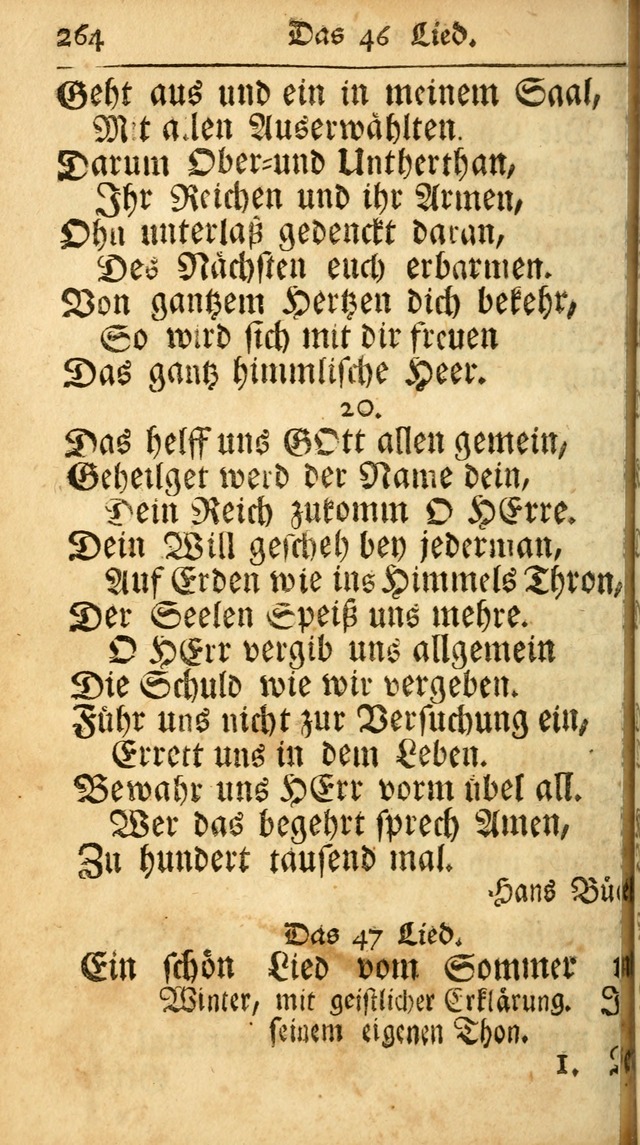 264 Das 46 Lied.
Geht aus und ein in meinem Saal,
Mit allen Auserwählten.
Darum Ober-und Untherthan,
Ihr Reichen und ihr Armen,
Ohn unterlaß gedenckt daran,
Des Nächsten euch erbarmen.
Von gantzem Hertzen dich bekehr,
So wird sich mit dir freuen
Das gantz himmlische Heer.
20.
Das helff uns GOtt allen gemein,
Geheilget werd der Name dein,
Dein Reich zukomm O HErre.
Dein Will gescheh bey jederman,
Auf Erden wie ins Himmels Thron,
Der Seelen Speiß uns mehre.
O HErr vergib uns allgemein
Die Schuld wie wir vergeben.
Führ uns nicht zur Versuchung ein,
Errett uns in dem Leben.
Bewahr uns HErr vorm übel all.
Wer das begehrt sprech Amen,
Zu hundert tausend mal.
Hans
Das 47 Lied.
Ein schön Lied vom Sommer
Winter, mit geistlicher Erklärung.
seinem eigenen Thon.
1.